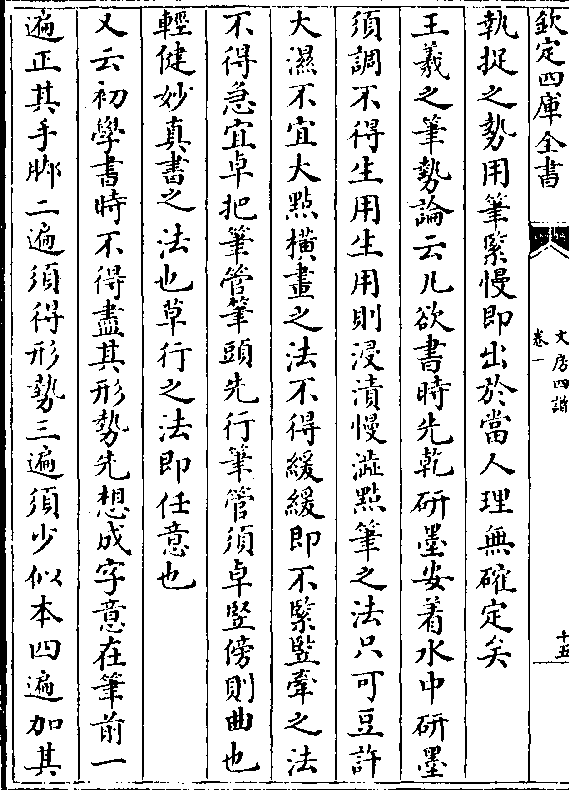 欽定四庫全書
文房四譜
卷一
十五
執捉之勢用筆緊慢即出於當人理無確定矣
王羲之筆勢論云凡欲書時先乾研墨安着水中研墨
須調不得生用生用則浸漬慢澁點筆之法只可豆許
大濕不宜大點橫畫之法不得緩緩即不緊豎牽之法
不得急宜卓把筆管筆頭先行筆管須卓竪傍則曲也
輕健妙真書之法也草行之法即任意也
又云初學書時不得盡其形勢先想成字意在筆前一
遍正其手腳二遍須得形勢三遍須少似本四遍加其